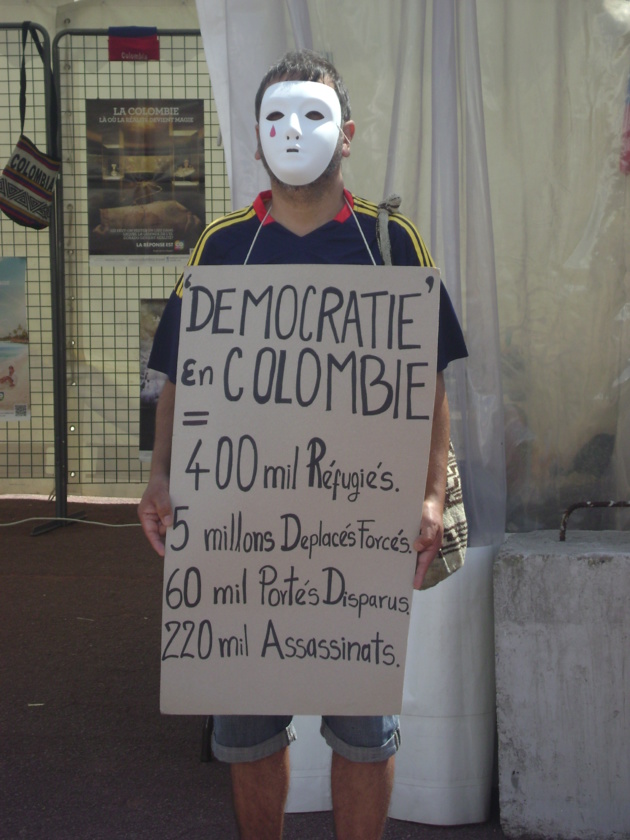 Colombia
LA COLOMBIE
LÀ OÙ LA RÉALITÉ DEVIENT MAGIE
COLOMBIA
LA RÉPONSE EST
'DEMOCRATIE'
En COLOMBIE
=
400 mil Réfugiés.
5 millons Deplacés Forcés.
60 mil Portés Disparus.
220 mil Assassinats.